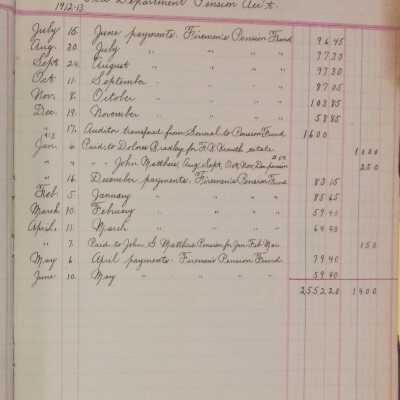 Department Pension Acc't.
1912-13
July 16. June payments. Firemen's Pension Fund 96.45
Aug. 20. July " " " 77.20
Sept 24. August " " " 97.20
Oct 11. September " " " 87.05
Nov. 8. October " " " 103.85
Dec. 19. November " " " 58.85
" 17. Auditor transferred from General to Pension Fund 1600
1913
Jan. 6 Paid to Dolores Bradley for estate 1000
" " " " John Matthus, Aug, Sept, Oct, Nov, Dec pension @50 250
" 16. December payments. Firemen's Pension Fund 83.15
Feb. 5. January " " " 85.65
March 10. February " " " 59.40
April, 11. March " " "
" 7. Paid to John G. Matthus Pension for Jan. Feb. Mar. 150
May 6 April payments. Firemen's Pension Fund 79.40
June 10. May " " " 59.40
2552.20 1400